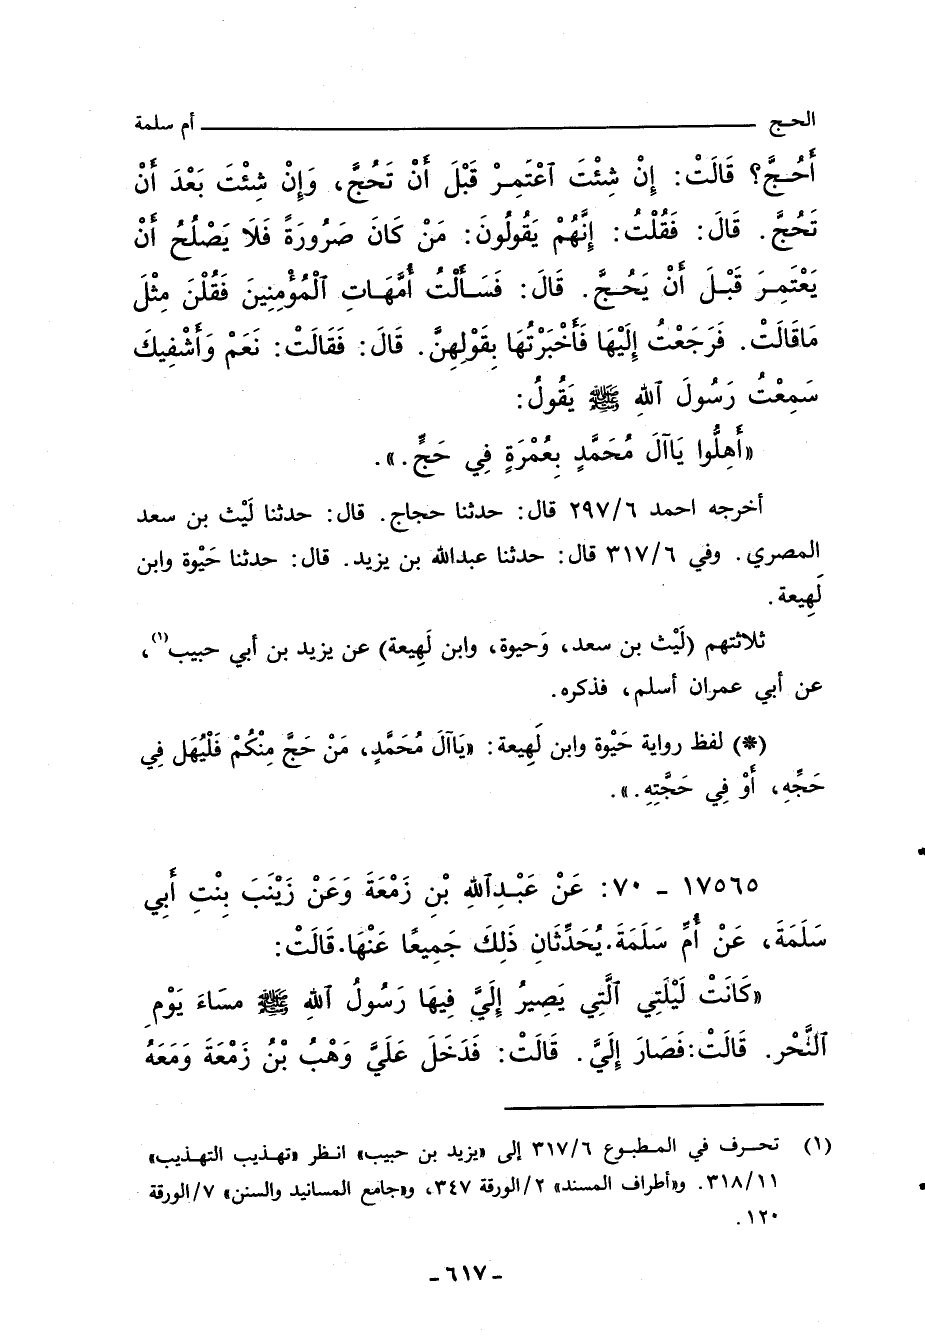 الحـج ــــــــــــــــــــ أم سلمة
أَحُـجَّ؟ قَالَتْ: إِنْ شِئْتَ ٱعْتَمِـرْ قَبْلَ أَنْ تَحُجَّ، وَإِنْ شِئْتَ بَعْدَ أَنْ
تَحُجَّ. قَالَ: فَقُلْتُ: إِنَّهُمْ يَقُولُونَ: مَنْ كَانَ صَرُورَةً فَلَا يَصْلُحُ أَنْ
يَعْتَمِـرَ قَبْـلَ أَنْ يَحُـجَّ. قَالَ: فَسَـأَلْتُ أُمَّهَـاتِ ٱلْمُؤْمِنِينَ فَقُلْنَ مِثْلَ
مَاقَالَتْ. فَرَجَعْتُ إِلَيْهَا فَأَخْبَرْتُهَا بِقَوْلِهِنَّ. قَالَ: فَقَالَتْ: نَعَمْ وَأَشْفِيكَ
سَمِعْتُ رَسُولَ ٱللهِ ﷺ يَقُولُ:
«أَهِلُّوا يَاآلَ مُحَمَّدٍ بِعُمْرَةٍ فِي حَجٍّ.».
أخرجه احمد ٢٩٧/٦ قال: حدثنا حجاج. قال: حدثنا لَيْث بن سعد
المصري. وفي ٣١٧/٦ قال: حدثنا عبدالله بن يزيد. قال: حدثنا حَيْوة وابن
لَهِيعة.
ثلاثتهم (لَيْث بن سعد، وَحيوة، وابن لَهِيعة) عن يزيد بن أبي حبيب(١)،
عن أبي عمران أسلم، فذكره.
(*) لفظ رواية حَيْوة وابن لَهِيعة: «يَاآلَ مُحَمَّدٍ، مَنْ حَجَّ مِنْكُمْ فَلْيُهَل فِي
حَجِّهِ، أَوْ فِي حَجَّتِهِ.».
١٧٥٦٥ - ٧٠: عَنْ عَبْـدِاللهِ بْنِ زَمْعَةَ وَعَنْ زَيْنَبَ بِنْتِ أَبِي
سَلَمَةَ، عَنْ أُمِّ سَلَمَةَ. يُحَدِّثَانِ ذَلِكَ جَمِيعًا عَنْهَا. قَالَتْ:
«كَانَتْ لَيْلَتِي ٱلَّتِي يَصِيرُ إِلَيَّ فِيهَا رَسُولُ ٱللهِ ﷺ مساءَ يَوْمِ
ٱلنَّحْر. قَالَتْ: فَصَارَ إِلَيَّ. قَالَتْ: فَدَخَلَ عَلَيَّ وَهْبُ بْنُ زَمْعَةَ وَمَعَهُ
(١) تحـرف في المـطبـوع ٣١٧/٦ إلى «يزيد بن حبيب» انـظر «تهـذيب التهـذيب»
٣١٨/١١. و«أطراف المسند» ٢/الورقة ٣٤٧، و«جامع المسانيد والسنن» ٧/الورقة
١٢٠.
- ٦١٧ -